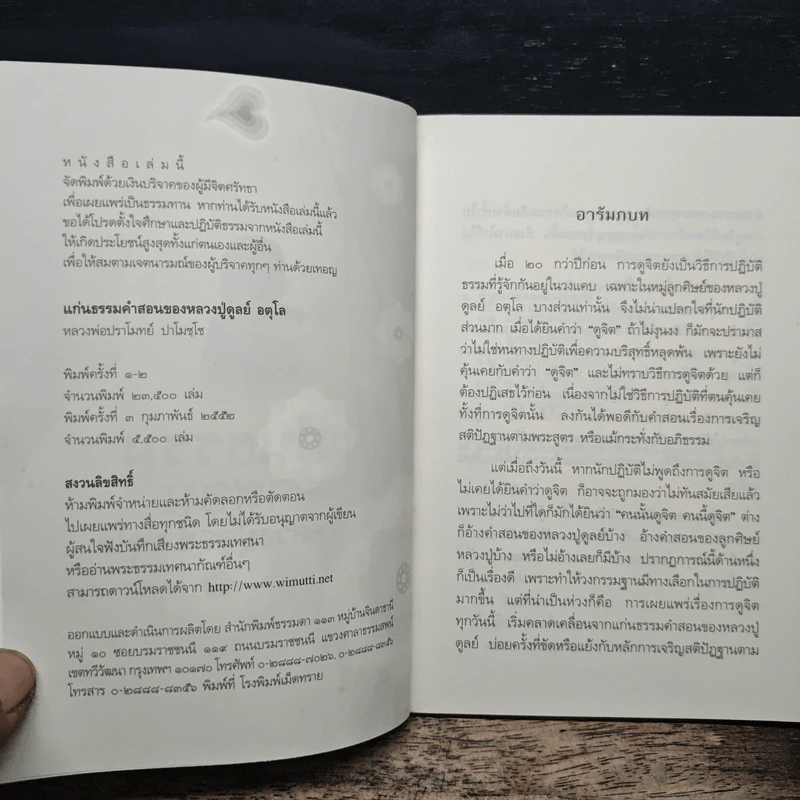 ห นั ง สื อ เ ล่ ม นี้
จัดพิมพ์ด้วยเงินบริจาคของผู้มีจิตศรัทธา
เพื่อเผยแพร่เป็นธรรมทาน หากท่านได้รับหนังสือเล่มนี้แล้ว
ขอได้โปรดตั้งใจศึกษาและปฏิบัติธรรมจากหนังสือเล่มนี้
ให้เกิดประโยชน์สูงสุดทั้งแก่ตนเองและผู้อื่น
เพื่อให้สมตามเจตนารมณ์ของผู้บริจาคทุกๆ ท่านด้วยเทอญ
แก่นธรรมคำสอนของหลวงปู่ดูลย์ อตุโล
หลวงพ่อปราโมทย์ ปาโมชฺโช
พิมพ์ครั้งที่ ๑-๒
จำนวนพิมพ์ ๒๓,๕๐๐ เล่ม
พิมพ์ครั้งที่ ๓ กุมภาพันธ์ ๒๕๕๒
จำนวนพิมพ์ ๕,๕๐๐ เล่ม
สงวนลิขสิทธิ์
ห้ามพิมพ์จำหน่ายและห้ามคัดลอกหรือตัดตอน
ไปเผยแพร่ทางสื่อทุกชนิด โดยไม่ได้รับอนุญาตจากผู้เขียน
ผู้สนใจฟังบันทึกเสียงพระธรรมเทศนา
หรืออ่านพระธรรมเทศนากัณฑ์อื่นๆ
สามารถดาวน์โหลดได้จาก http://www.wimutti.net
ออกแบบและดำเนินการผลิตโดย สำนักพิมพ์ธรรมดา ๑๑๓ หมู่บ้านจินดาธานี
หมู่ ๑๐ ซอยบรมราชชนนี ๑๑๙ ถนนบรมราชชนนี แขวงศาลาธรรมสพน์
เขตทวีวัฒนา กรุงเทพฯ ๑๐๑๗๐ โทรศัพท์ ๐-๒๘๘๘-๗๐๒๖, ๐-๒๘๘๘-๘๓๕๖
โทรสาร ๐-๒๘๘๘-๘๓๕๖ พิมพ์ที่ โรงพิมพ์เม็ดทราย
อารัมภบท
เมื่อ ๒๐ กว่าปีก่อน การดูจิตยังเป็นวิธีการปฏิบัติ
ธรรมที่รู้จักกันอยู่ในวงแคบ เฉพาะในหมู่ลูกศิษย์ของหลวงปู่
ดูลย์ อตุโล บางส่วนเท่านั้น จึงไม่น่าแปลกใจที่นักปฏิบัติ
ส่วนมาก เมื่อได้ยินคำว่า “ดูจิต” ถ้าไม่งุนงง ก็มักจะปรามาส
ว่าไม่ใช่หนทางปฏิบัติเพื่อความบริสุทธิ์หลุดพ้น เพราะยังไม่
คุ้นเคยกับคำว่า “ดูจิต” และไม่ทราบวิธีการดูจิตด้วย แต่ก็
ต้องปฏิเสธไว้ก่อน เนื่องจากไม่ใช่วิธีการปฏิบัติที่ตนคุ้นเคย
ทั้งที่การดูจิตนั้น ลงกันได้พอดีกับคำสอนเรื่องการเจริญ
สติปัฏฐานตามพระสูตร หรือแม้กระทั่งกับอภิธรรม
แต่เมื่อถึงวันนี้ หากนักปฏิบัติไม่พูดถึงการดูจิต หรือ
ไม่เคยได้ยินคำว่าดูจิต ก็อาจจะถูกมองว่าไม่ทันสมัยเสียแล้ว
เพราะไม่ว่าไปที่ใดก็มักได้ยินว่า “คนนั้นดูจิต คนนี้ดูจิต” ต่าง
ก็อ้างคำสอนของหลวงปู่ดูลย์บ้าง อ้างคำสอนของลูกศิษย์
หลวงปู่บ้าง หรือไม่อ้างเลยก็มีบ้าง ปรากฏการณ์นี้ด้านหนึ่ง
ก็เป็นเรื่องดี เพราะทำให้วงกรรมฐานมีทางเลือกในการปฏิบัติ
มากขึ้น แต่ที่น่าเป็นห่วงก็คือ การเผยแพร่เรื่องการดูจิต
ทุกวันนี้ เริ่มคลาดเคลื่อนจากแก่นธรรมคำสอนของหลวงปู่
ดูลย์ บ่อยครั้งที่ขัดหรือแย้งกับหลักการเจริญสติปัฏฐานตาม